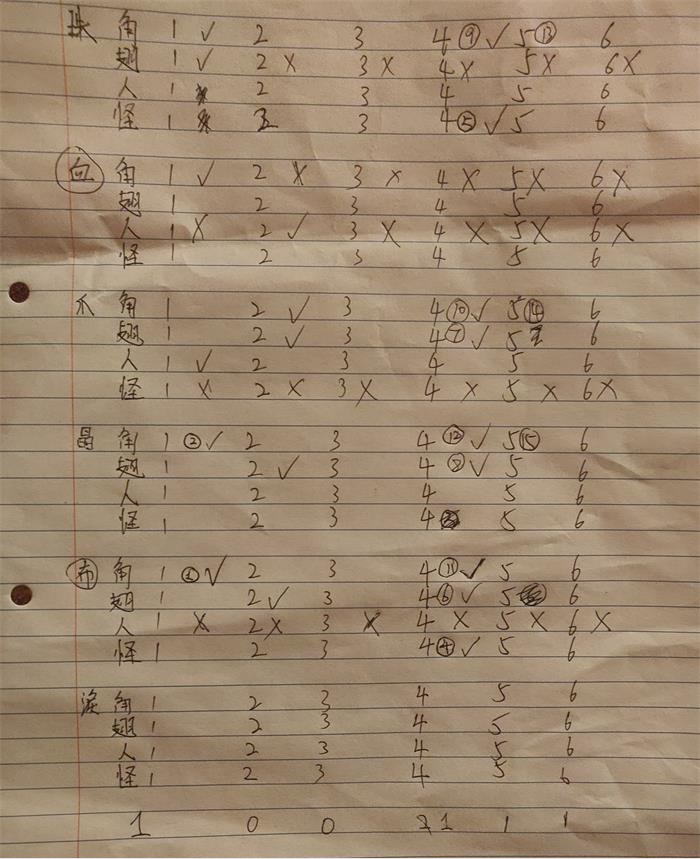 珠 角 1 ✓ 2 3 4 ⑨ ✓ 5 ⑬ 6
翅 1 ✓ 2 × 3 × 4 × 5 × 6 ×
人 1 2 3 4 5 6
怪 1 2 3 4 ⑤ ✓ 5 6
向 角 1 ✓ 2 × 3 × 4 × 5 × 6 ×
翅 1 2 3 4 5 6
人 1 × 2 ✓ 3 × 4 × 5 × 6 ×
怪 1 2 3 4 5 6
爪 角 1 2 ✓ 3 4 ⑩ ✓ 5 ⑭ 6
翅 1 2 ✓ 3 4 ⑦ ✓ 5 6
人 1 ✓ 2 3 4 5 6
怪 1 × 2 × 3 × 4 × 5 × 6 ×
晶 角 1 ② ✓ 2 3 4 ⑫ ✓ 5 ⑮ 6
翅 1 2 ✓ 3 4 ⑧ ✓ 5 6
人 1 2 3 4 5 6
怪 1 2 3 4 5 6
布 角 1 ① ✓ 2 3 4 ⑪ ✓ 5 6
翅 1 2 ✓ 3 4 ⑥ ✓ 5 6
人 1 × 2 × 3 × 4 × 5 × 6 ×
怪 1 2 3 4 ④ ✓ 5 6
淚 角 1 2 3 4 5 6
翅 1 2 3 4 5 6
人 1 2 3 4 5 6
怪 1 2 3 4 5 6
1 0 0 1 1 1